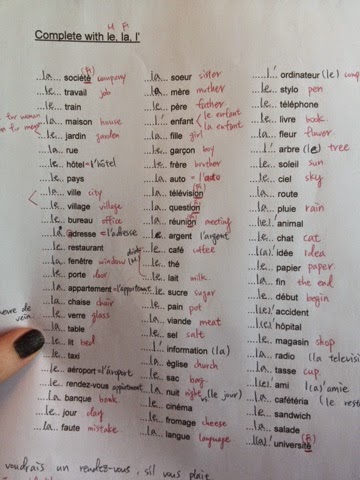 Complete with le, la, l'
la... société company
le... travail job
le... train
la... maison house
le... jardin garden
la... rue
le... hôtel = l'hôtel
le... pays
la... ville city
le... village village
le... bureau office
la adresse = l'adresse
le... restaurant
la... fenêtre window
le... porte door
la... appartement = l'appartement
la... chaise chair
le... verre glass
la... table
le... lit bed
le... taxi
le... aéroport = l'aéroport
le... rendez-vous appointment
la... banque bank
le... jour day
la... faute mistake
la... soeur sister
la... mère mother
le... père father
l'... enfant le enfant la enfant
la... fille girl
le... garçon boy
le... frère brother
la... auto = l'auto
la... télévision
la... question
la... réunion meeting
le... argent l'argent
le... café coffee
le... thé
le... lait milk
le... sucre sugar
le... pain pot
la... viande meat
le... sel salt
l'... information (la)
la... église church
le... sac bag
la... nuit night vs (le jour)
le... cinéma
le... fromage cheese
la... langue language
l'... ordinateur (le)
le... stylo pen
le... téléphone
le... livre book
la... fleur flower
l'... arbre (le) tree
le... soleil sun
le... ciel sky
la... route
la... pluie rain
l(e)' animal
le... chat cat
l(a)' idée idea
le... papier paper
la... fin the end
le... début begin
l(e)' accident
l(a)' hôpital
le... magasin shop
la... radio (la televisi
la... tasse cup
l(e)' ami l(a)'amie
la... cafétéria (le res
le... sandwich
la... salade
l(a)' université
voudrais un rendez-vous, s'il vous plait